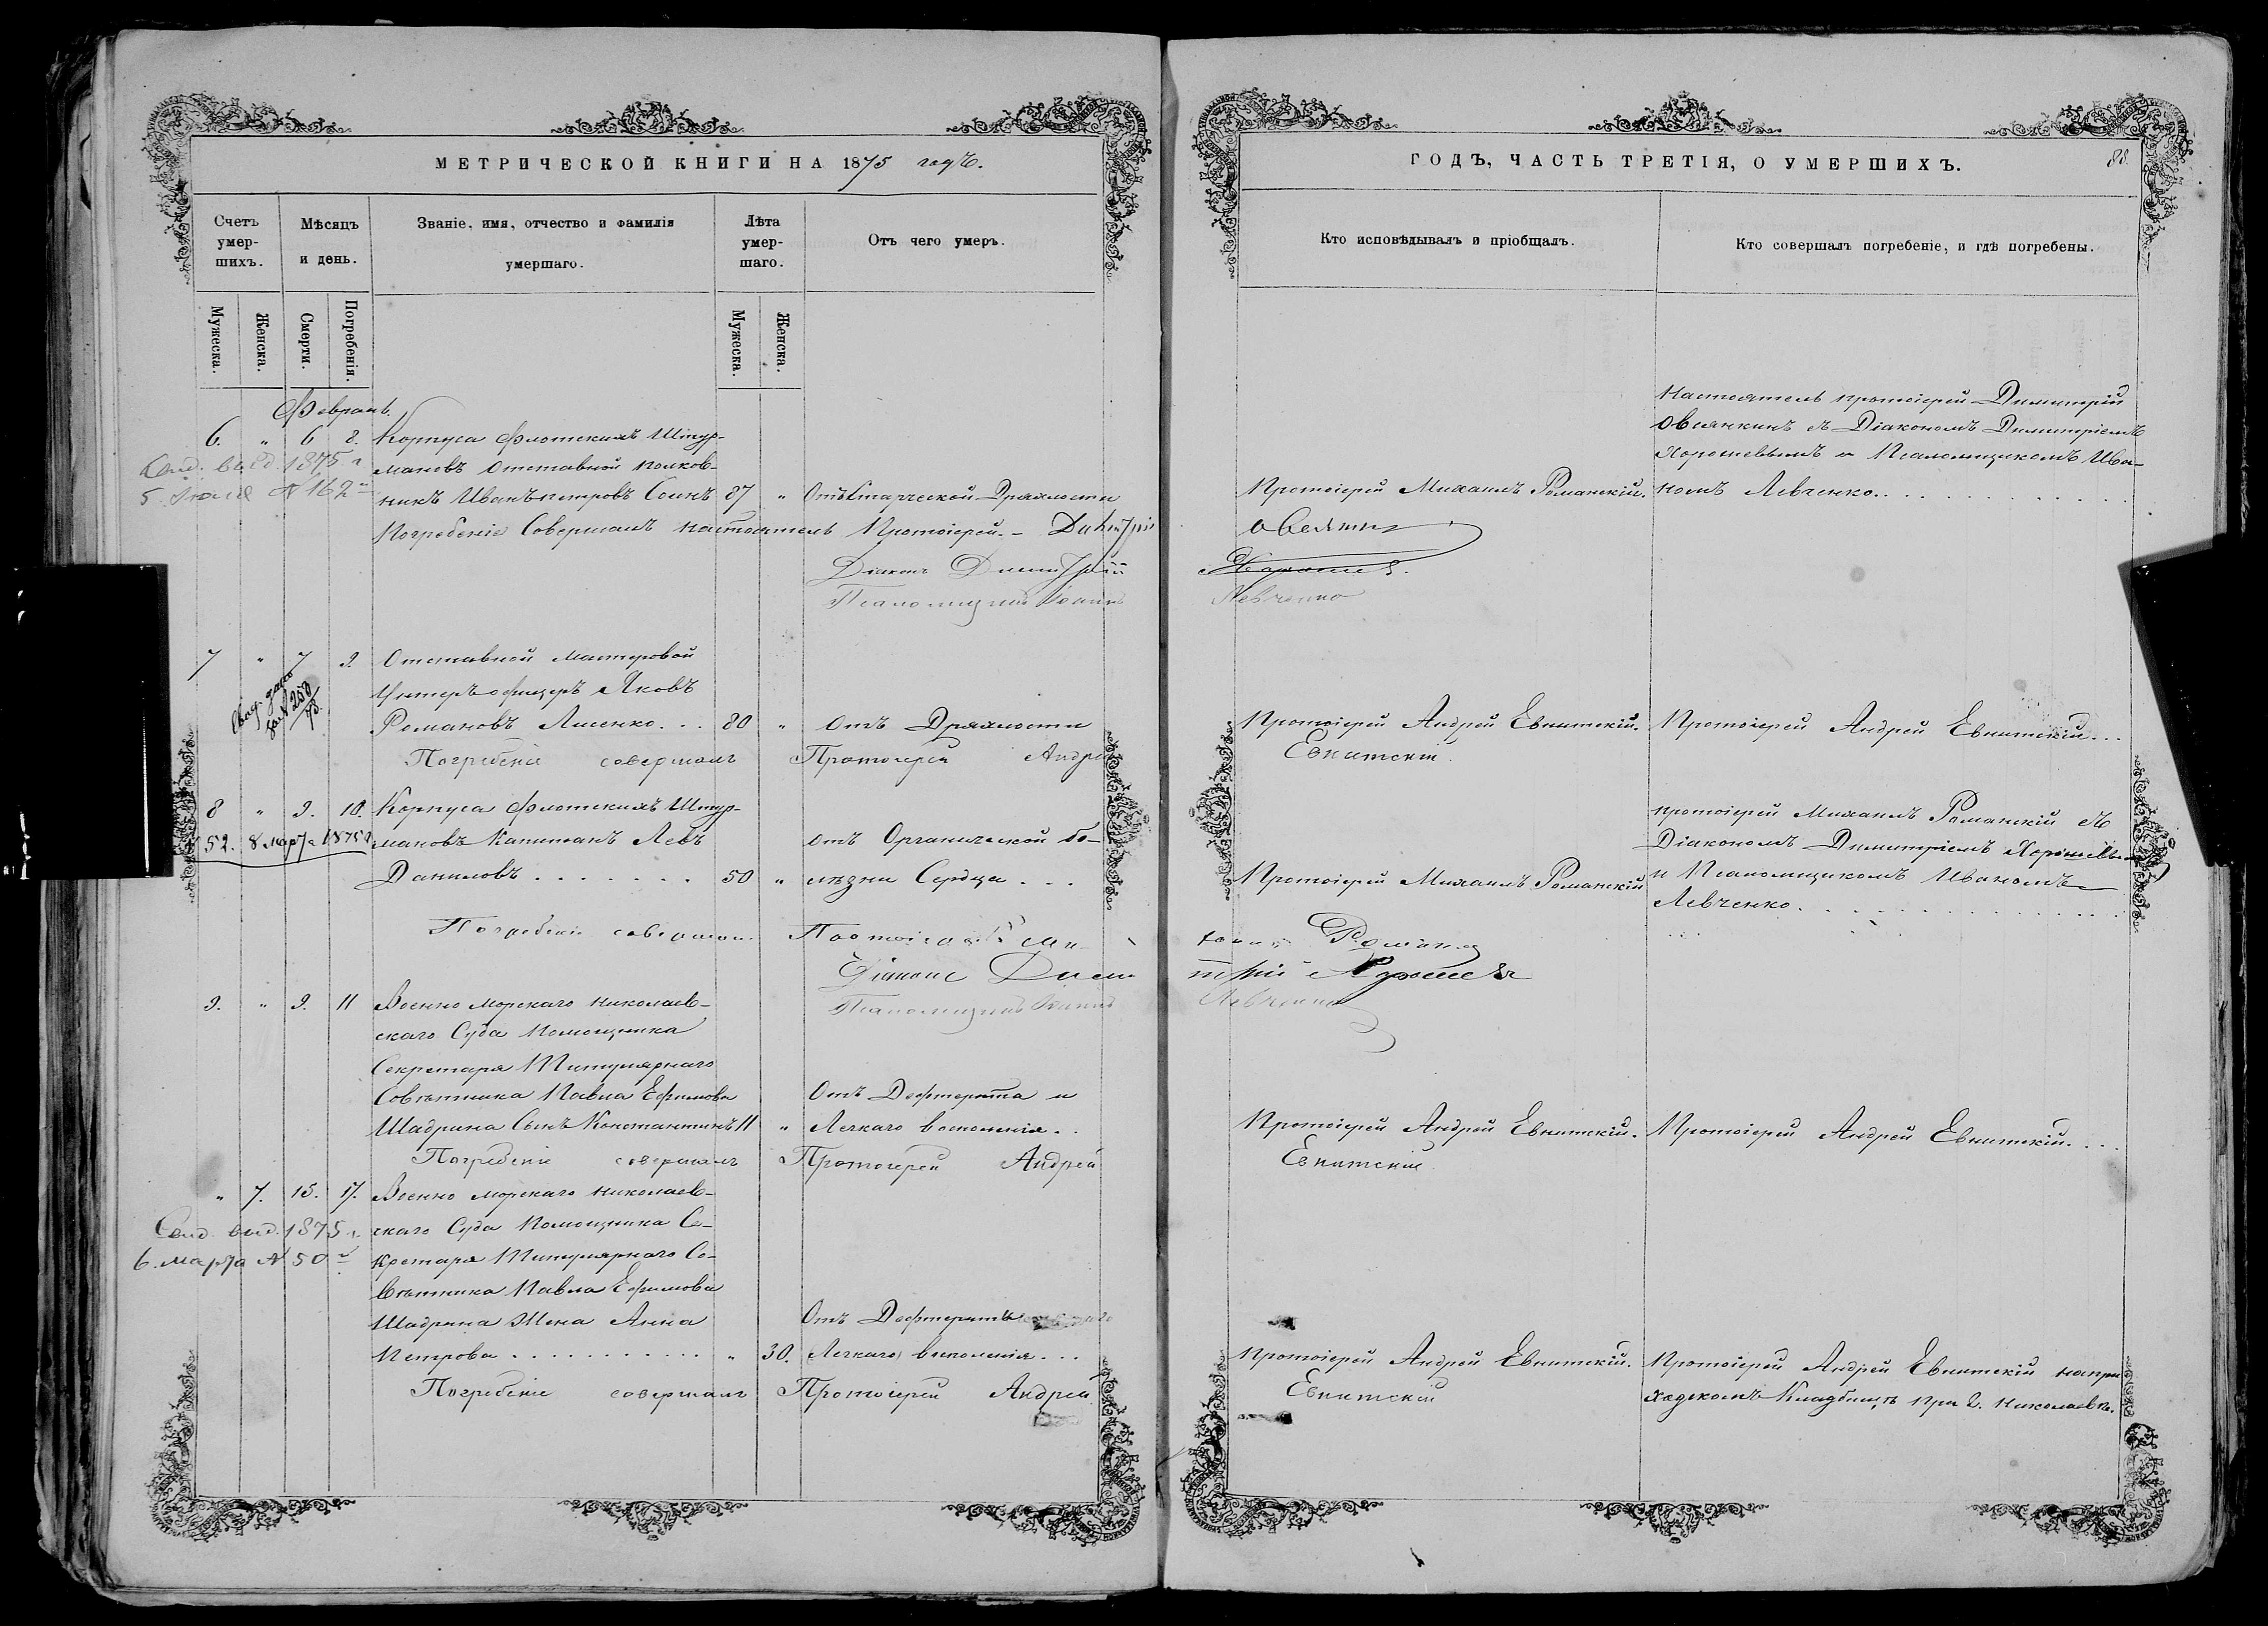 МЕТРИЧЕСКОЙ КНИГИ НА 1875 годъ.
Счетъ умер-шихъ.
Мѣсяцъ и день.
Званіе, имя, отчество и фамилія умершаго.
Лѣта умер-шаго.
Отъ чего умеръ.
Мужеска.
Женска.
Смерти.
Погребенія.
Мужеска.
Женска.
Февраль.
6. " 6 8. Корпуса Флотскихъ Штур-
Свид. выд. 1875 г. мановъ отставной полков-
5. Іюня № 162 никъ Иванъ Петровъ 87 " Отъ Старческой Дряхлости
Погребеніе Совершалъ настоятель Протоіерей Димитрій
Діаконъ Димитрій
Псаломщикъ Іоаннъ
7 " 7 9. Отставной мастеровой
Свид. дано за № 250
Унтеръ офицеръ Яковъ
Романовъ Лисенко... 80 " Отъ Дряхлости
Погребеніе совершалъ Протоіерей Андрей
8 " 9. 10. Корпуса Флотскихъ Штур-
52. 8 марта 1875 г. мановъ Капитанъ Левъ отъ Органической бо-
Даниловъ....... 50 " лѣзни Сердца...
Погребеніе совершалъ Протоіерей Ми
Діаконъ Дими
Псаломщикъ Іоаннъ
9. " 9. 11 Военно морскаго николаев-
скаго Суда Помощника
Секретаря Титулярнаго
Совѣтника Павла Ефимова Отъ Дефтерита и
Шадрина Сынъ Константинъ 11 " Легкаго воспаленія..
Погребеніе совершалъ Протоіерей Андрей
" 7. 15. 17. Военно морскаго николаев-
Свид. выд. 1875 г. скаго Суда Помощника Се-
6. Марта № 50 кретаря Титулярнаго Со-
вѣтника Павла Ефимова
Шадрина Жена Анна Отъ Дефтерита
Петрова........... " 30. Легкаго воспаленія...
Погребеніе совершалъ Протоіерей Андрей
ГОДЪ, ЧАСТЬ ТРЕТІЯ, О УМЕРШИХЪ.
88
Кто исповѣдывалъ и пріобщалъ.
Кто совершалъ погребеніе, и гдѣ погребены.
Настоятель протоіерей Димитрій
Овсянкинъ съ Діакономъ Димитріемъ
Хорошевымъ и Псаломщикомъ Ива-
Протоіерей Михаилъ Романскій. номъ Левченко.............
Хорошев.
Левченко
Протоіерей Андрей Евнитскій. Протоіерей Андрей Евнитскій...
Евнитскій.
протоіерей Михаилъ Романскій съ
Діакономъ Димитріемъ Хорошевымъ
Протоіерей Михаилъ Романскій и Псаломщикомъ Иваномъ
Левченко.................
хаилъ Роман
трій Хорошев
Левченко
Протоіерей Андрей Евнитскій. Протоіерей Андрей Евнитскій....
Евнитскій
Протоіерей Андрей Евнитскій. Протоіерей Андрей Евнитскій на при
Евнитскій ходскомъ Кладбищѣ при г. Николаевѣ.